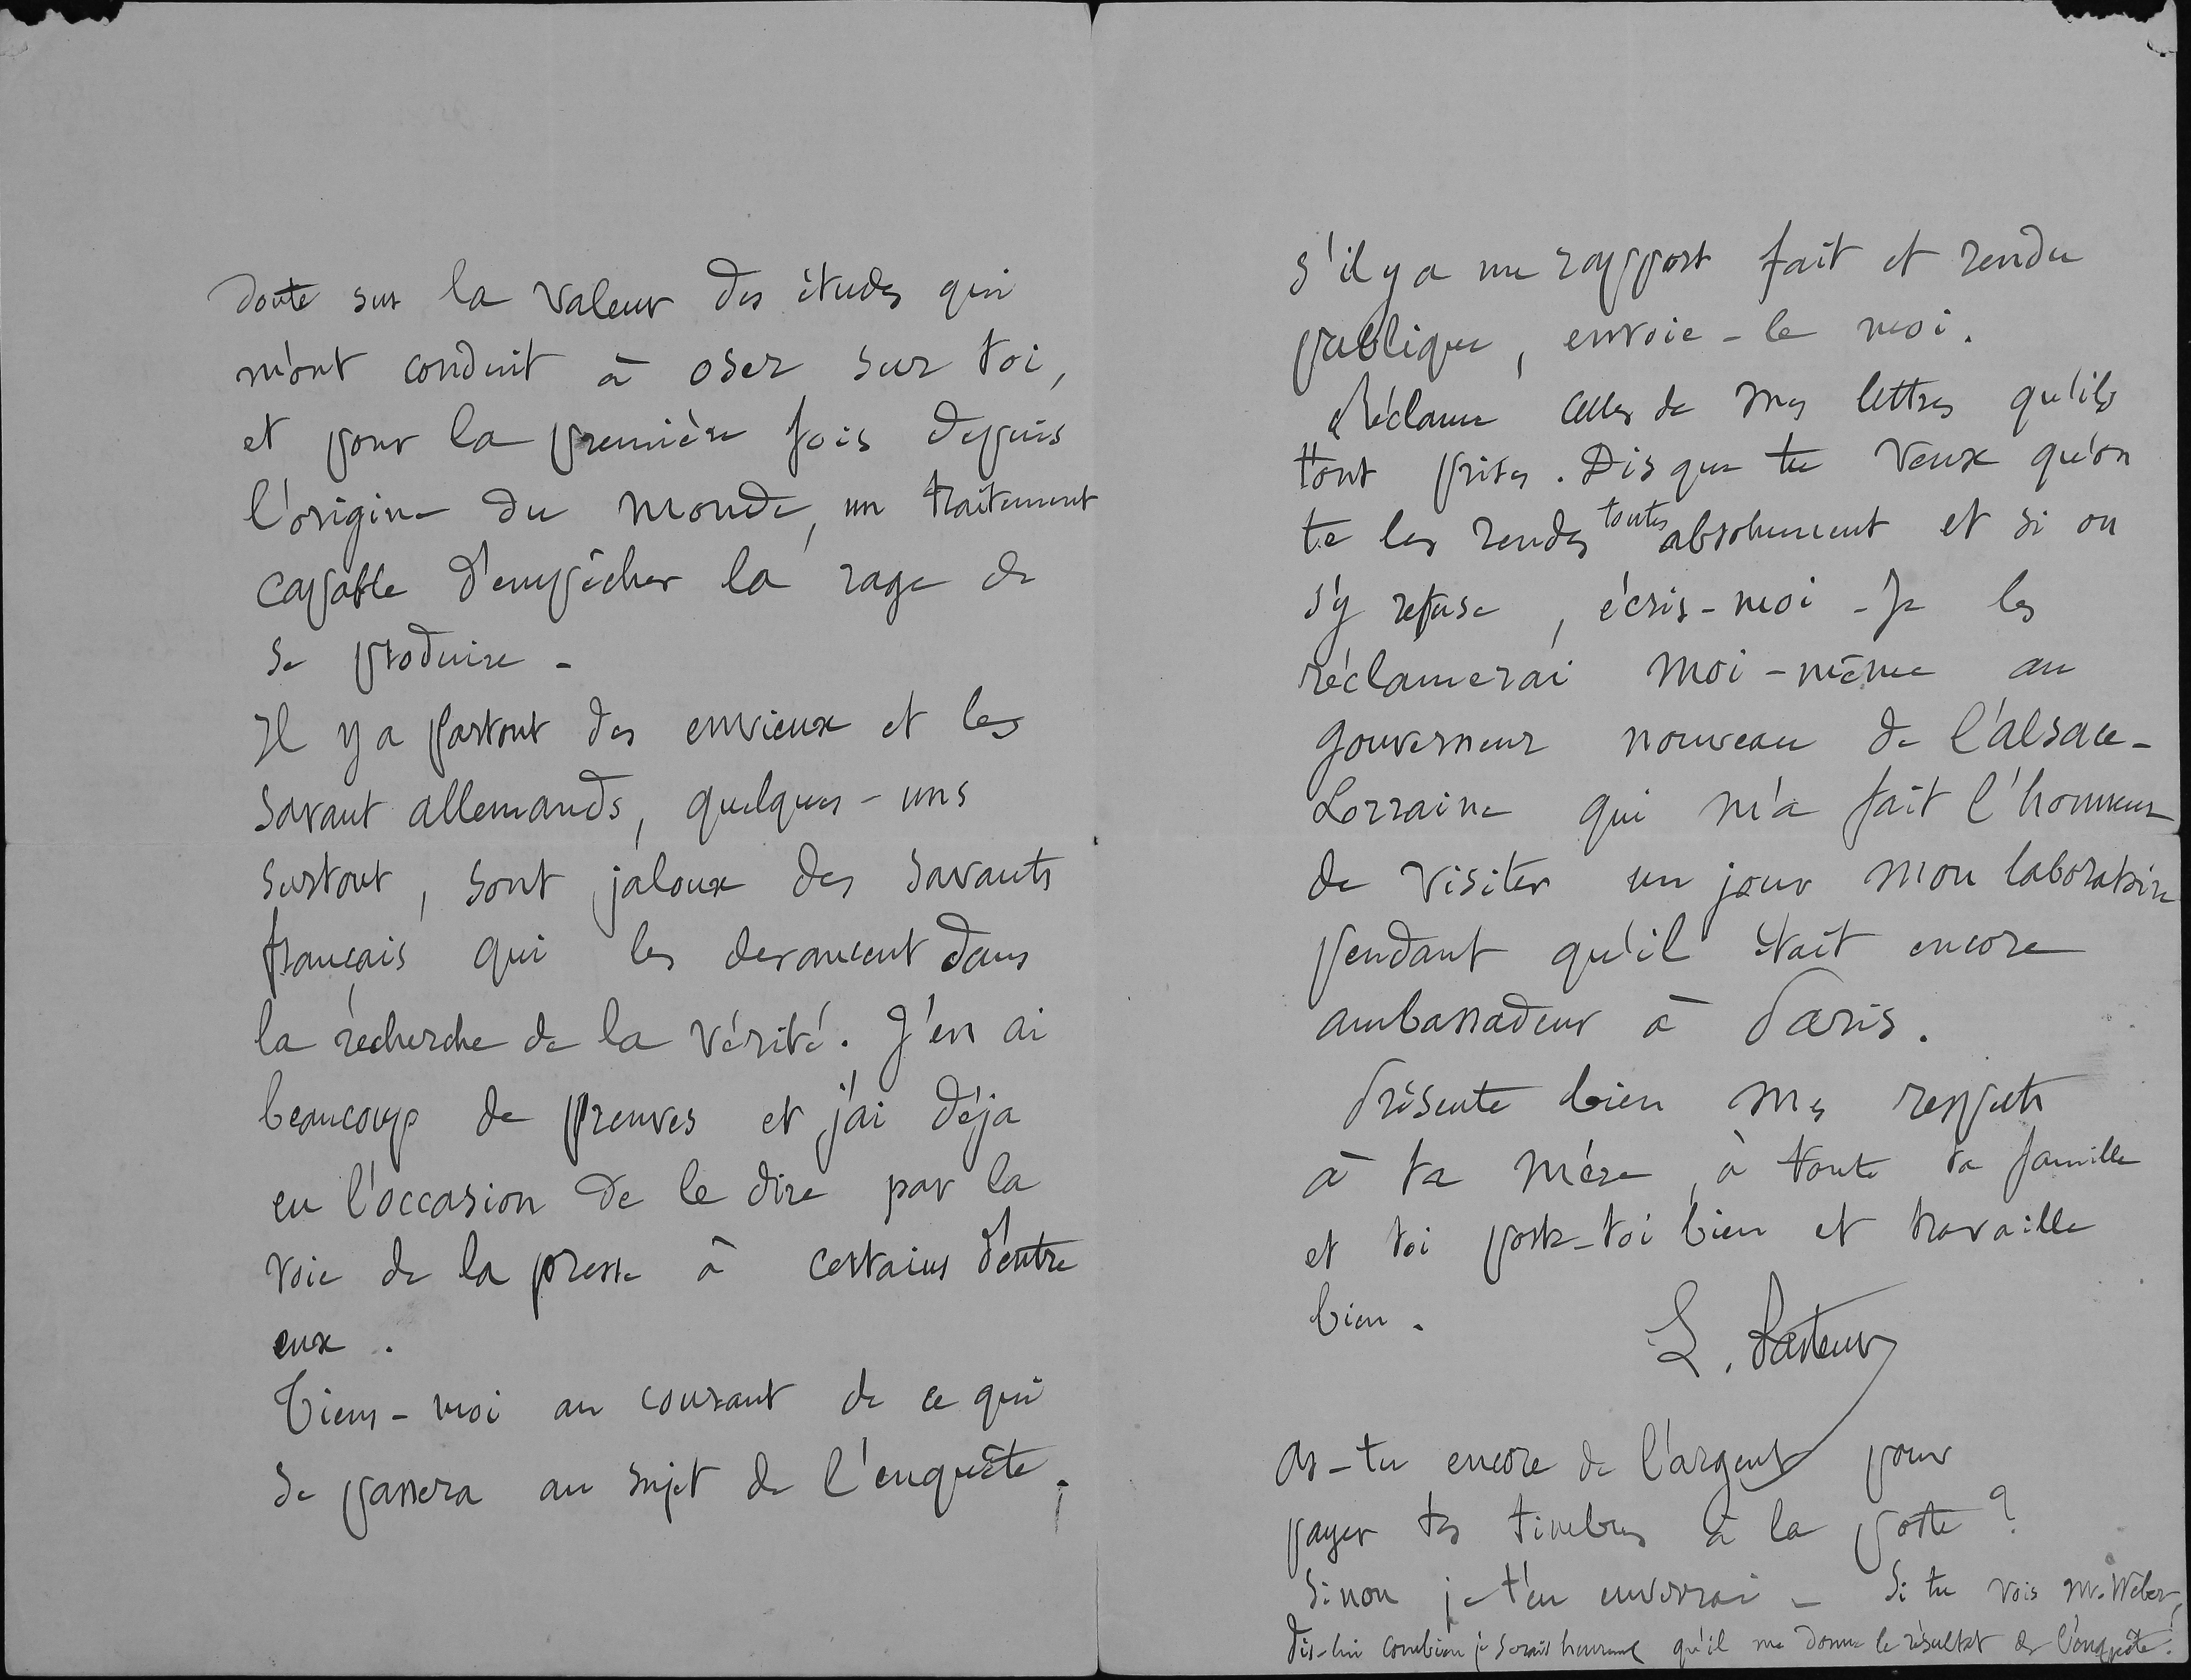 doute sur la valeur des études qui
m'ont conduit à oser sur toi,
et pour la première fois depuis
l'origine du monde, un traitement
capable d'empêcher la rage de
se produire -
Il y a partout des envieux et les
savant allemands, quelques-uns
surtout, sont jaloux des savants
français qui les devancent dans
la recherche de la vérité. J'en ai
beaucoup de preuves et j'ai déja
eu l'occasion de le dire par la
voie de la presse à certains d'entre
eux.
Tiens-moi au courant de ce qui
se passera au sujet de l'enquête.
s'il y a un rapport fait et rendu
publique, envoie-le moi.
Réclame celles de mes lettres qu'ils
t'ont prises. Dis que tu veux qu'on
te les rendes toutes absolument et si on
s'y refuse, écris-moi - Je les
réclamerai moi-même au
gouverneur nouveau de l'alsace-
Lorraine qui m'a fait l'honneur
de visiter un jour mon laboratoire
pendant qu'il était encore
ambassadeur à Paris.
Présente bien mes respects
à ta mère, à toute ta famille
et toi porte-toi bien et travaille
bien.
L. Pasteur
As-tu encore de l'argent pour
payer tes timbres à la poste ?
Sinon je t'en enverrai - Si tu vois Mr. Weber,
dis-lui combien je serais heureux qu'il me donne le résultat de l'enquête.